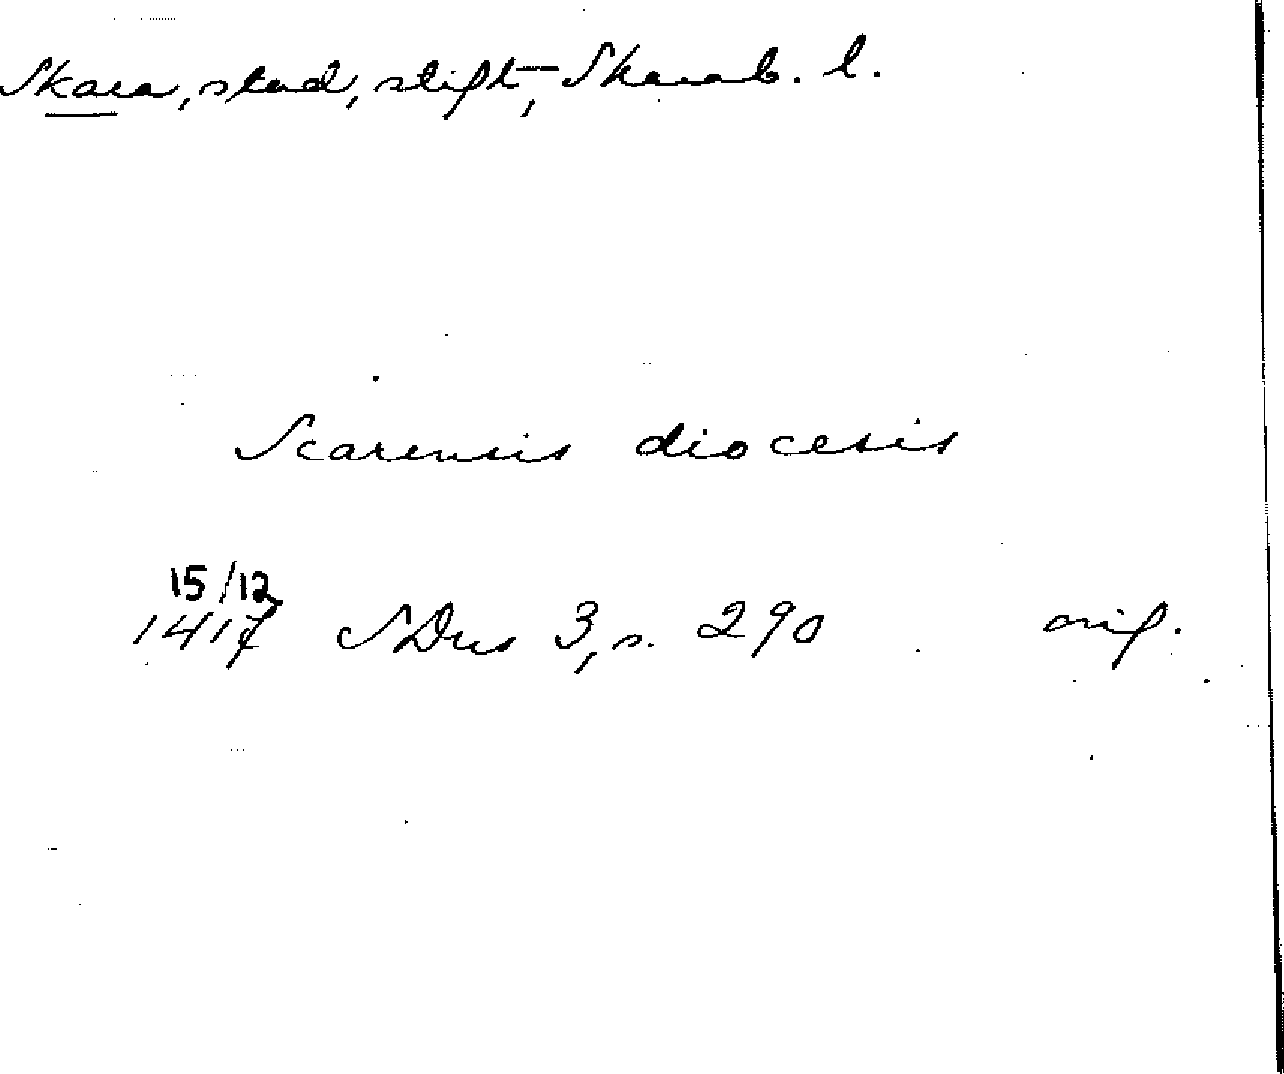 Skara, stad, stift, Skarab. l.
Scarensis diocesis
15/12
1417 SDns 3, s. 290 orig.